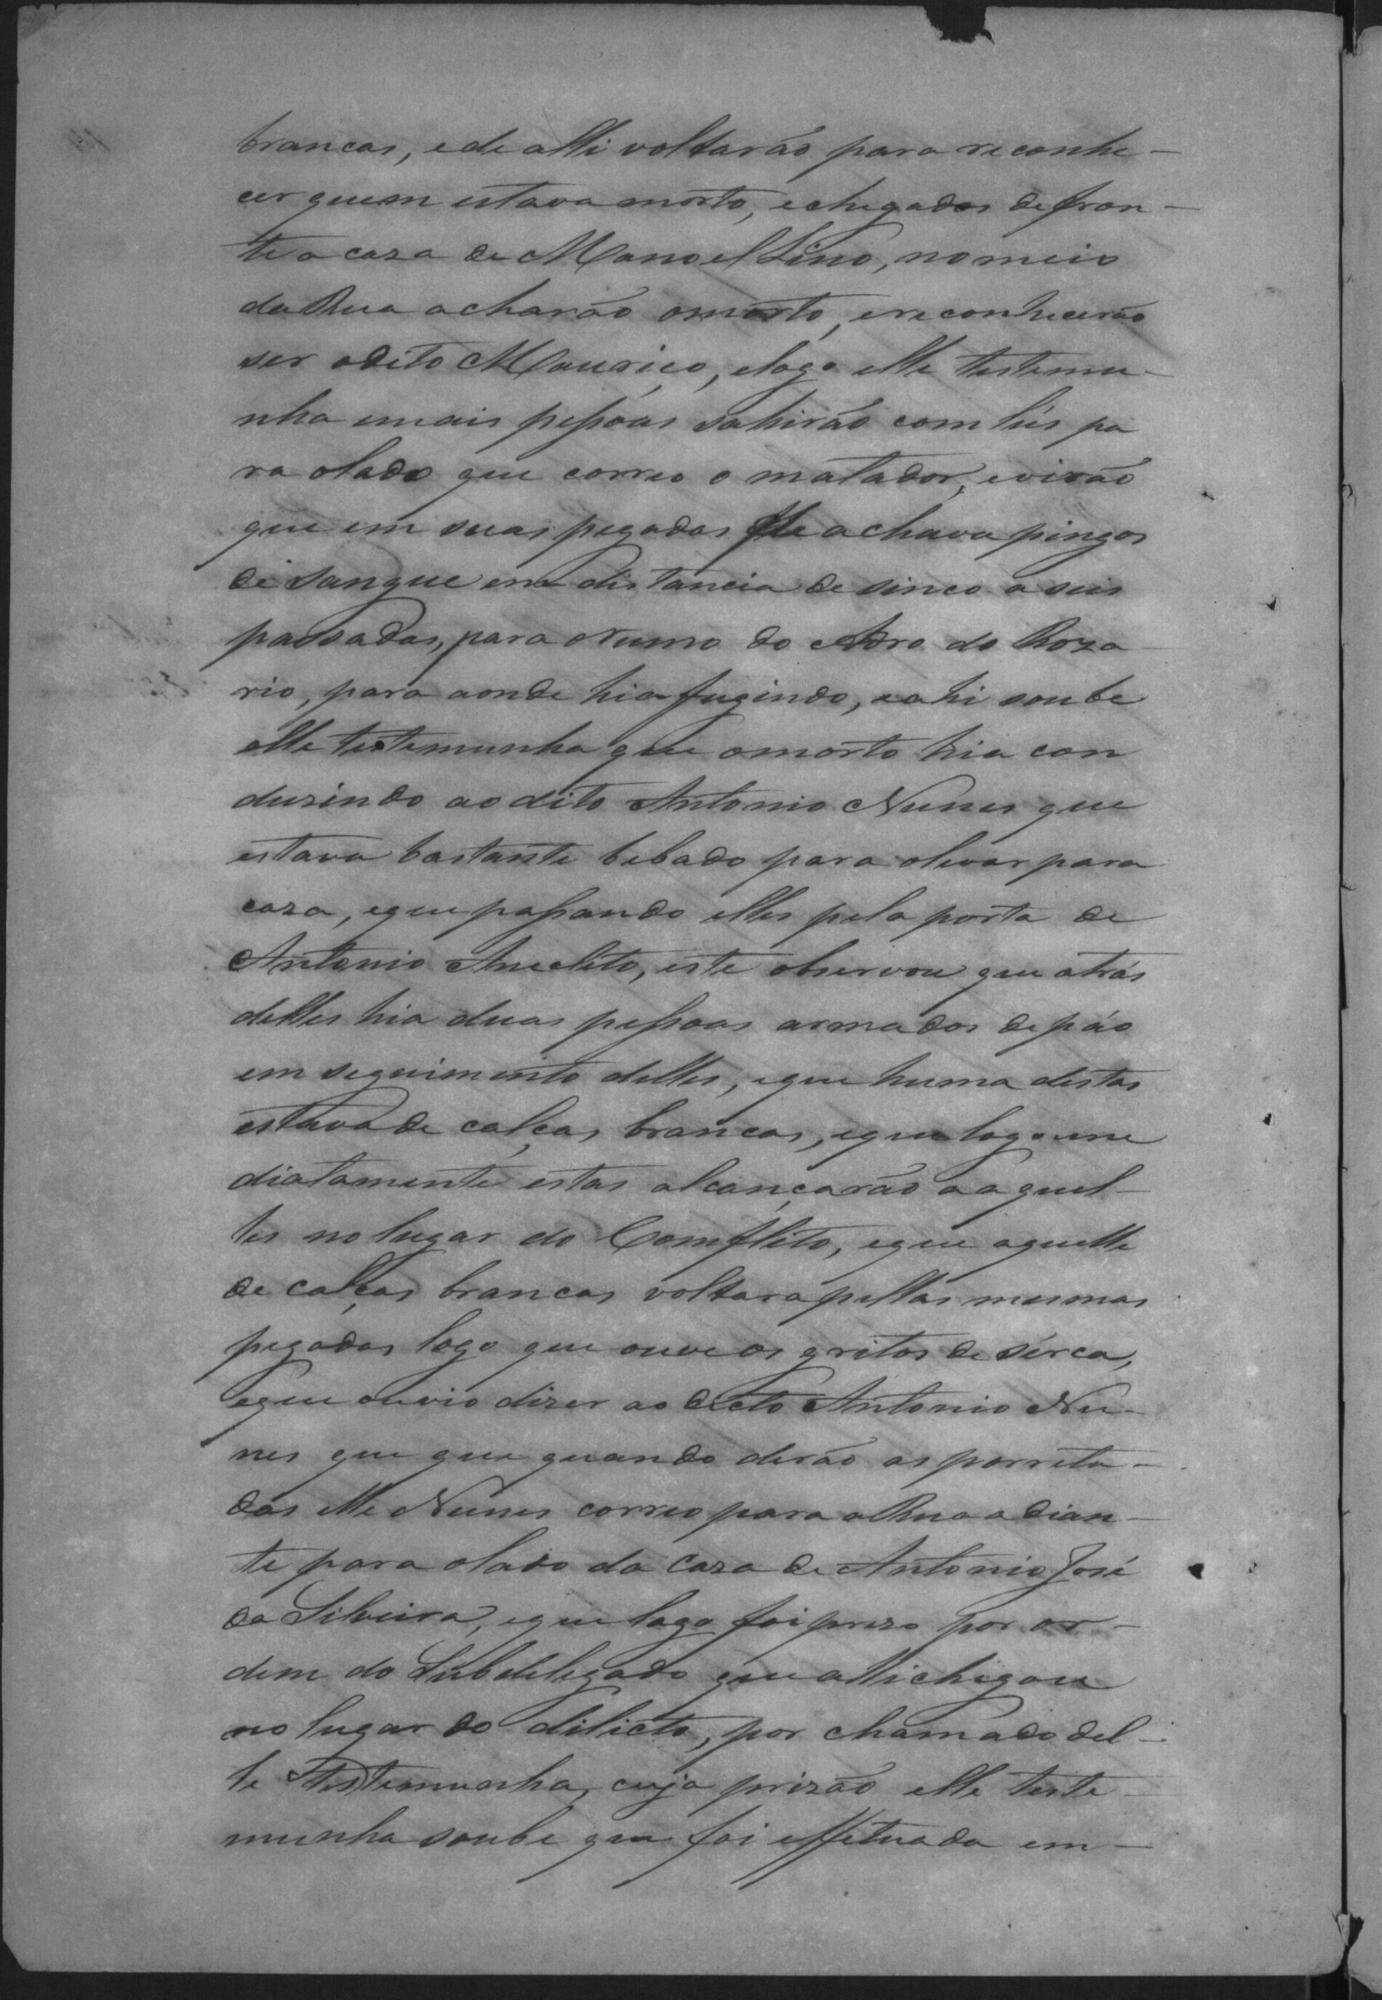 brancas, e de alli voltarão para reconhe-
cer quem estava morto, e chegados defron-
te a caza de Manoel Lino, no meio
da Rua acharão o morto, e reconhecerão
ser o dito Mauricio, e logo elle testemu-
nha e mais pessoas sahirão com lús pa
ra o lado que correo o matador, e virão
que em suas pegadas se achava pingos
de sangue em distancia de sinco a seis
passadas, para o rumo do Adro do Roza-
rio, para aonde hia fugindo, e ahi soube
elle testemunha que o morto hia con
duzindo ao dito Antonio Nunes que
estava bastante bebado para o levar para
caza, e que passando elles pela porta de
Antonio Anecleto, este observou que atrás
delles hia duas pessoas armados de páo
em seguimento delles, e que huma destas
estava de calças brancas, e que logo ime
diatamente estas alcançarão a aquel-
les no lugar do Comflito, e que aquelle
de calças brancas voltara pellas mesmas
pegadas logo que ouve os gritos de sérca,
e que ouvio dizer ao dicto Antonio Nu-
nes que que quando derão as porreta-
das elle Nunes correo para a Rua adian-
te para o lado da caza de Antonio José
da Silveira, e que logo foi prezo por or-
dem do Subdelegado que alli chegou
no lugar do delicto, por chamado del-
le Testemunha, cuja prizão elle teste-
munha soube que foi effetuada em-